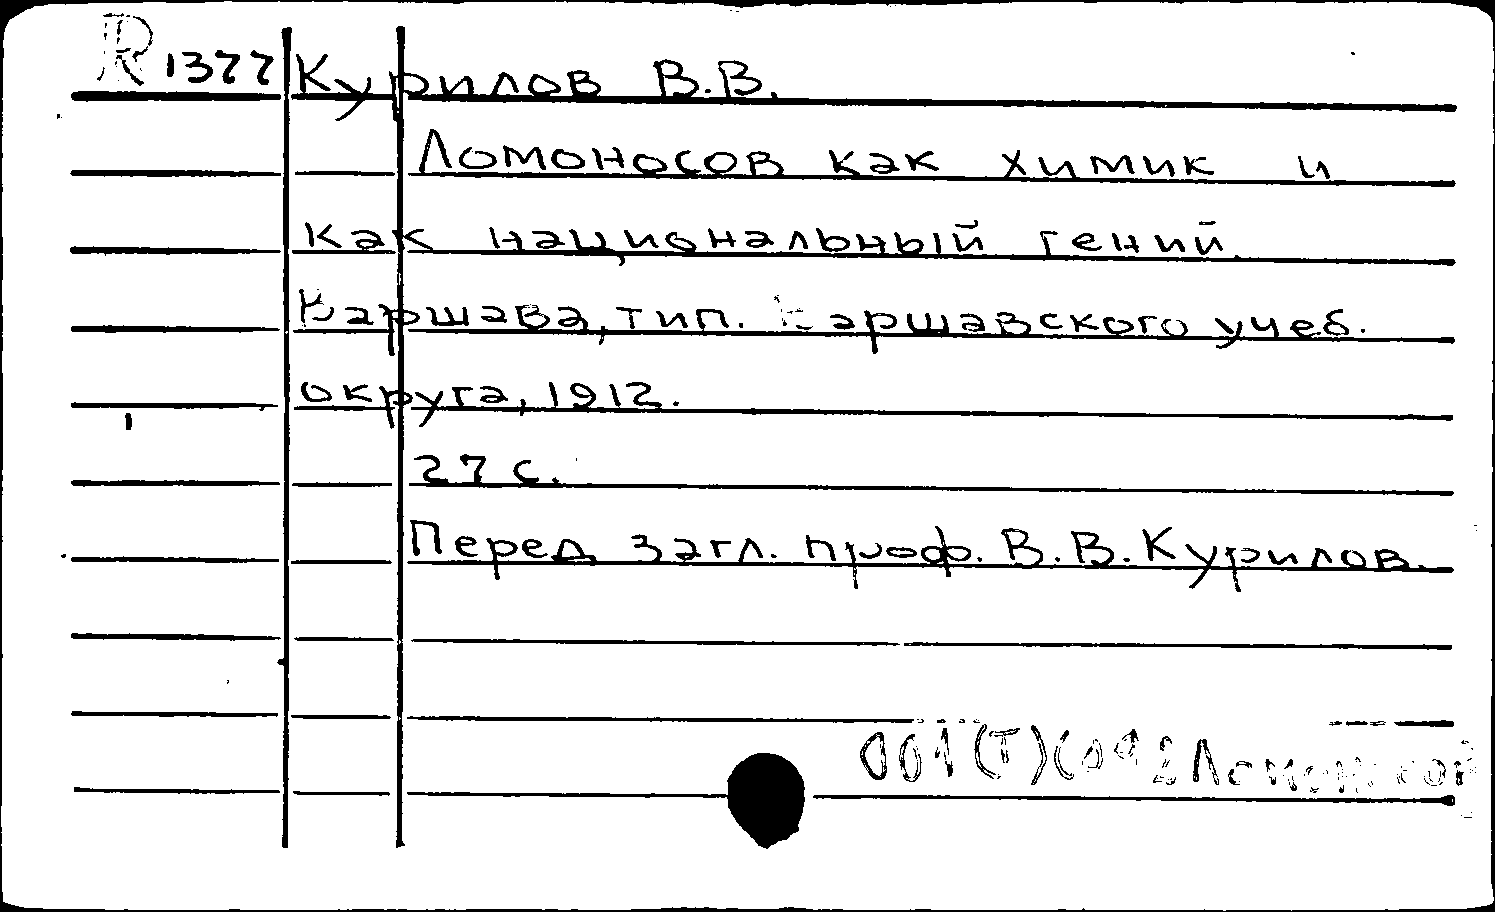 R 1377 Курилов В.В.
Ломоносов как химик и
как национальный гений.
Варшава, тип. Варшавского учеб.
округа, 1912.
27 с.
Перед загл. проф. В.В. Курилов.
001(Т)(092 Ломоносов